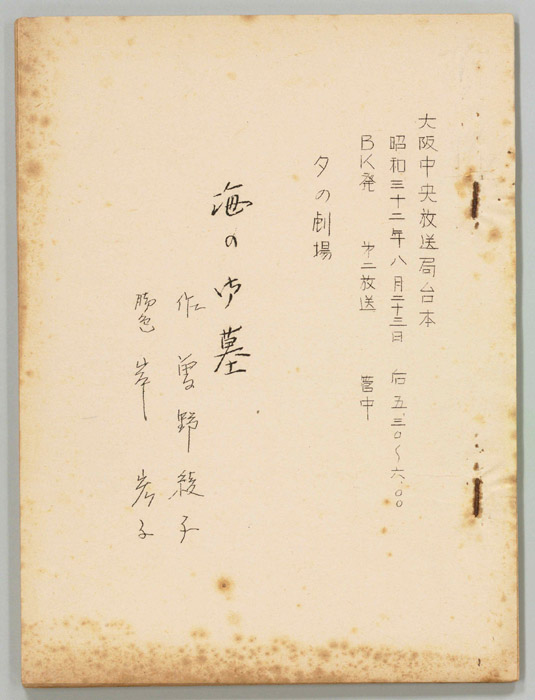 大阪中央放送局台本
昭和三十二年八月二十三日 后五.三〇〜六.〇〇
BK発 才二放送 管中
夕の劇場
海の御墓
作 曽野綾子
脚色 岸宏子